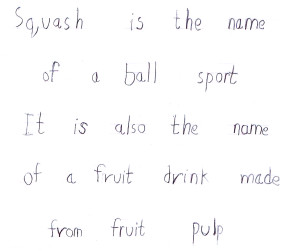 Squash is the name
of a ball sport
It is also the name
of a fruit drink made
from fruit pulp